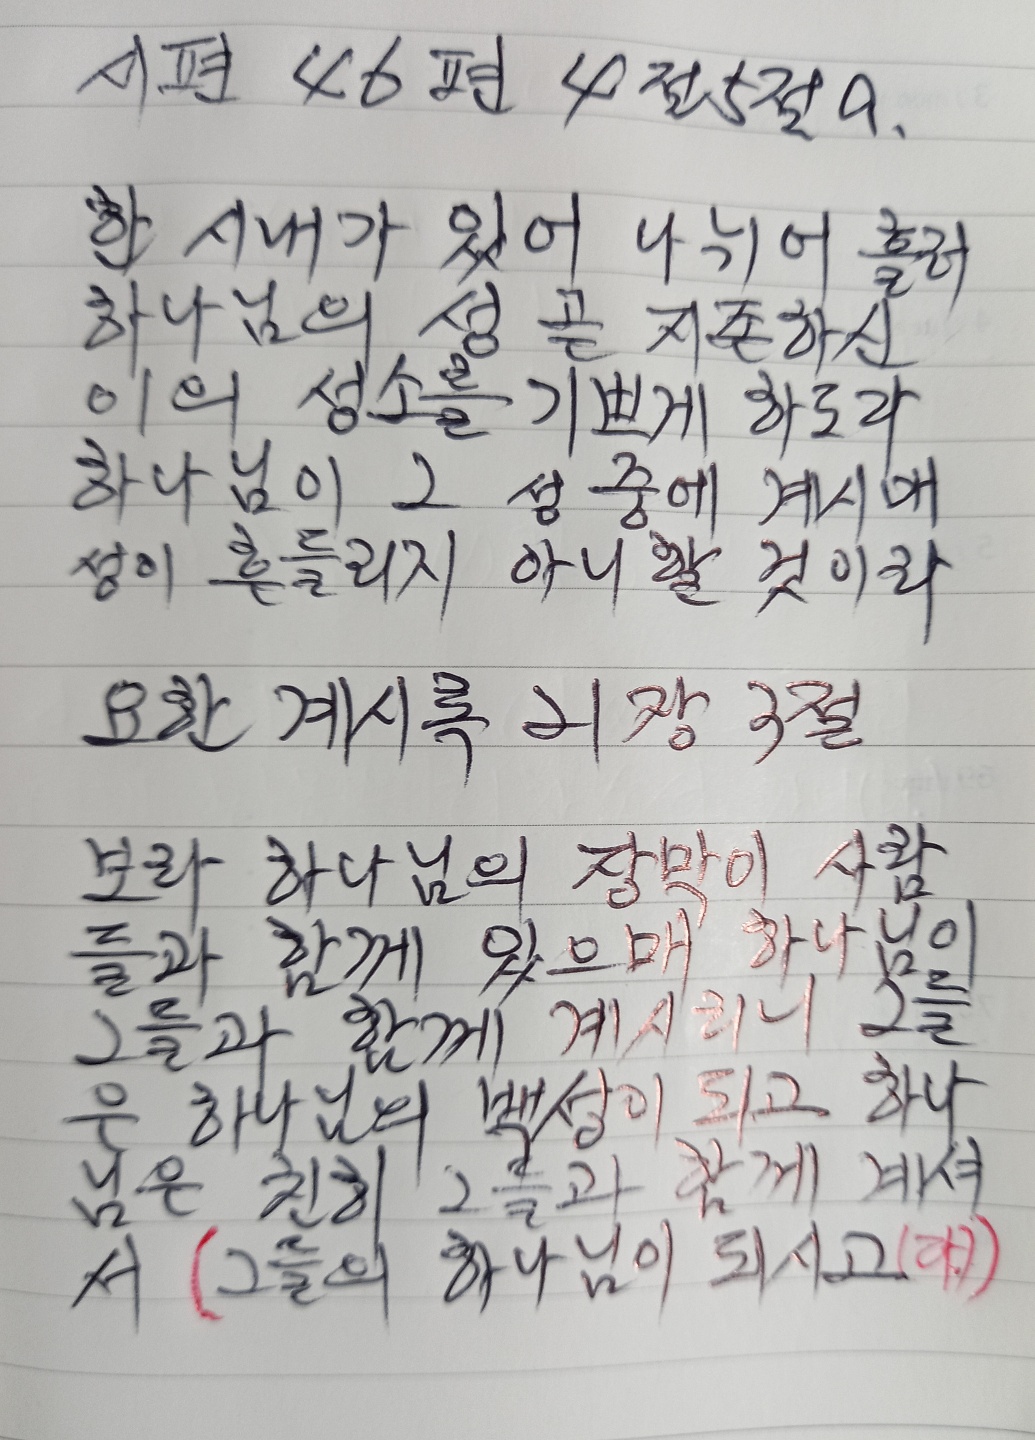 시편 46편 4절5절a.
한 시내가 있어 나뉘어 흘러
하나님의 성 곧 지존하신
이의 성소를 기쁘게 하도다
하나님이 그 성 중에 계시매
성이 흔들리지 아니할 것이라
요한 계시록 21장 3절
보라 하나님의 장막이 사람
들과 함께 있으매 하나님이
그들과 함께 계시리니 그들
은 하나님의 백성이 되고 하나
님은 친히 그들과 함께 계셔
서 (그들의 하나님이 되시고